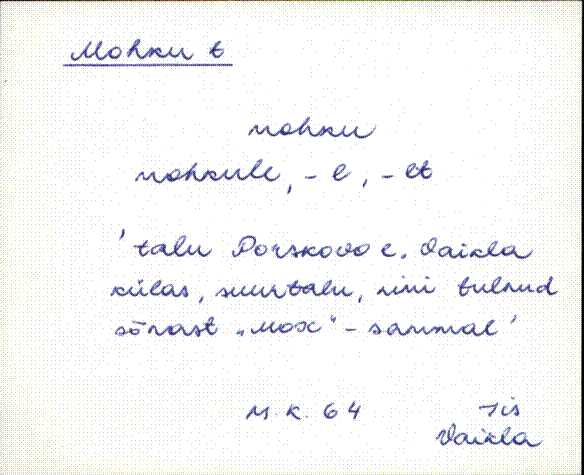 Mohku t
mohku
mohkule, -e, -et
'talu Porskovo e. Vaikla
külas, suurtalu, nimi tulnud
sõnast „мох“ - sammal'
M. K. 64 Iis
Vaikla